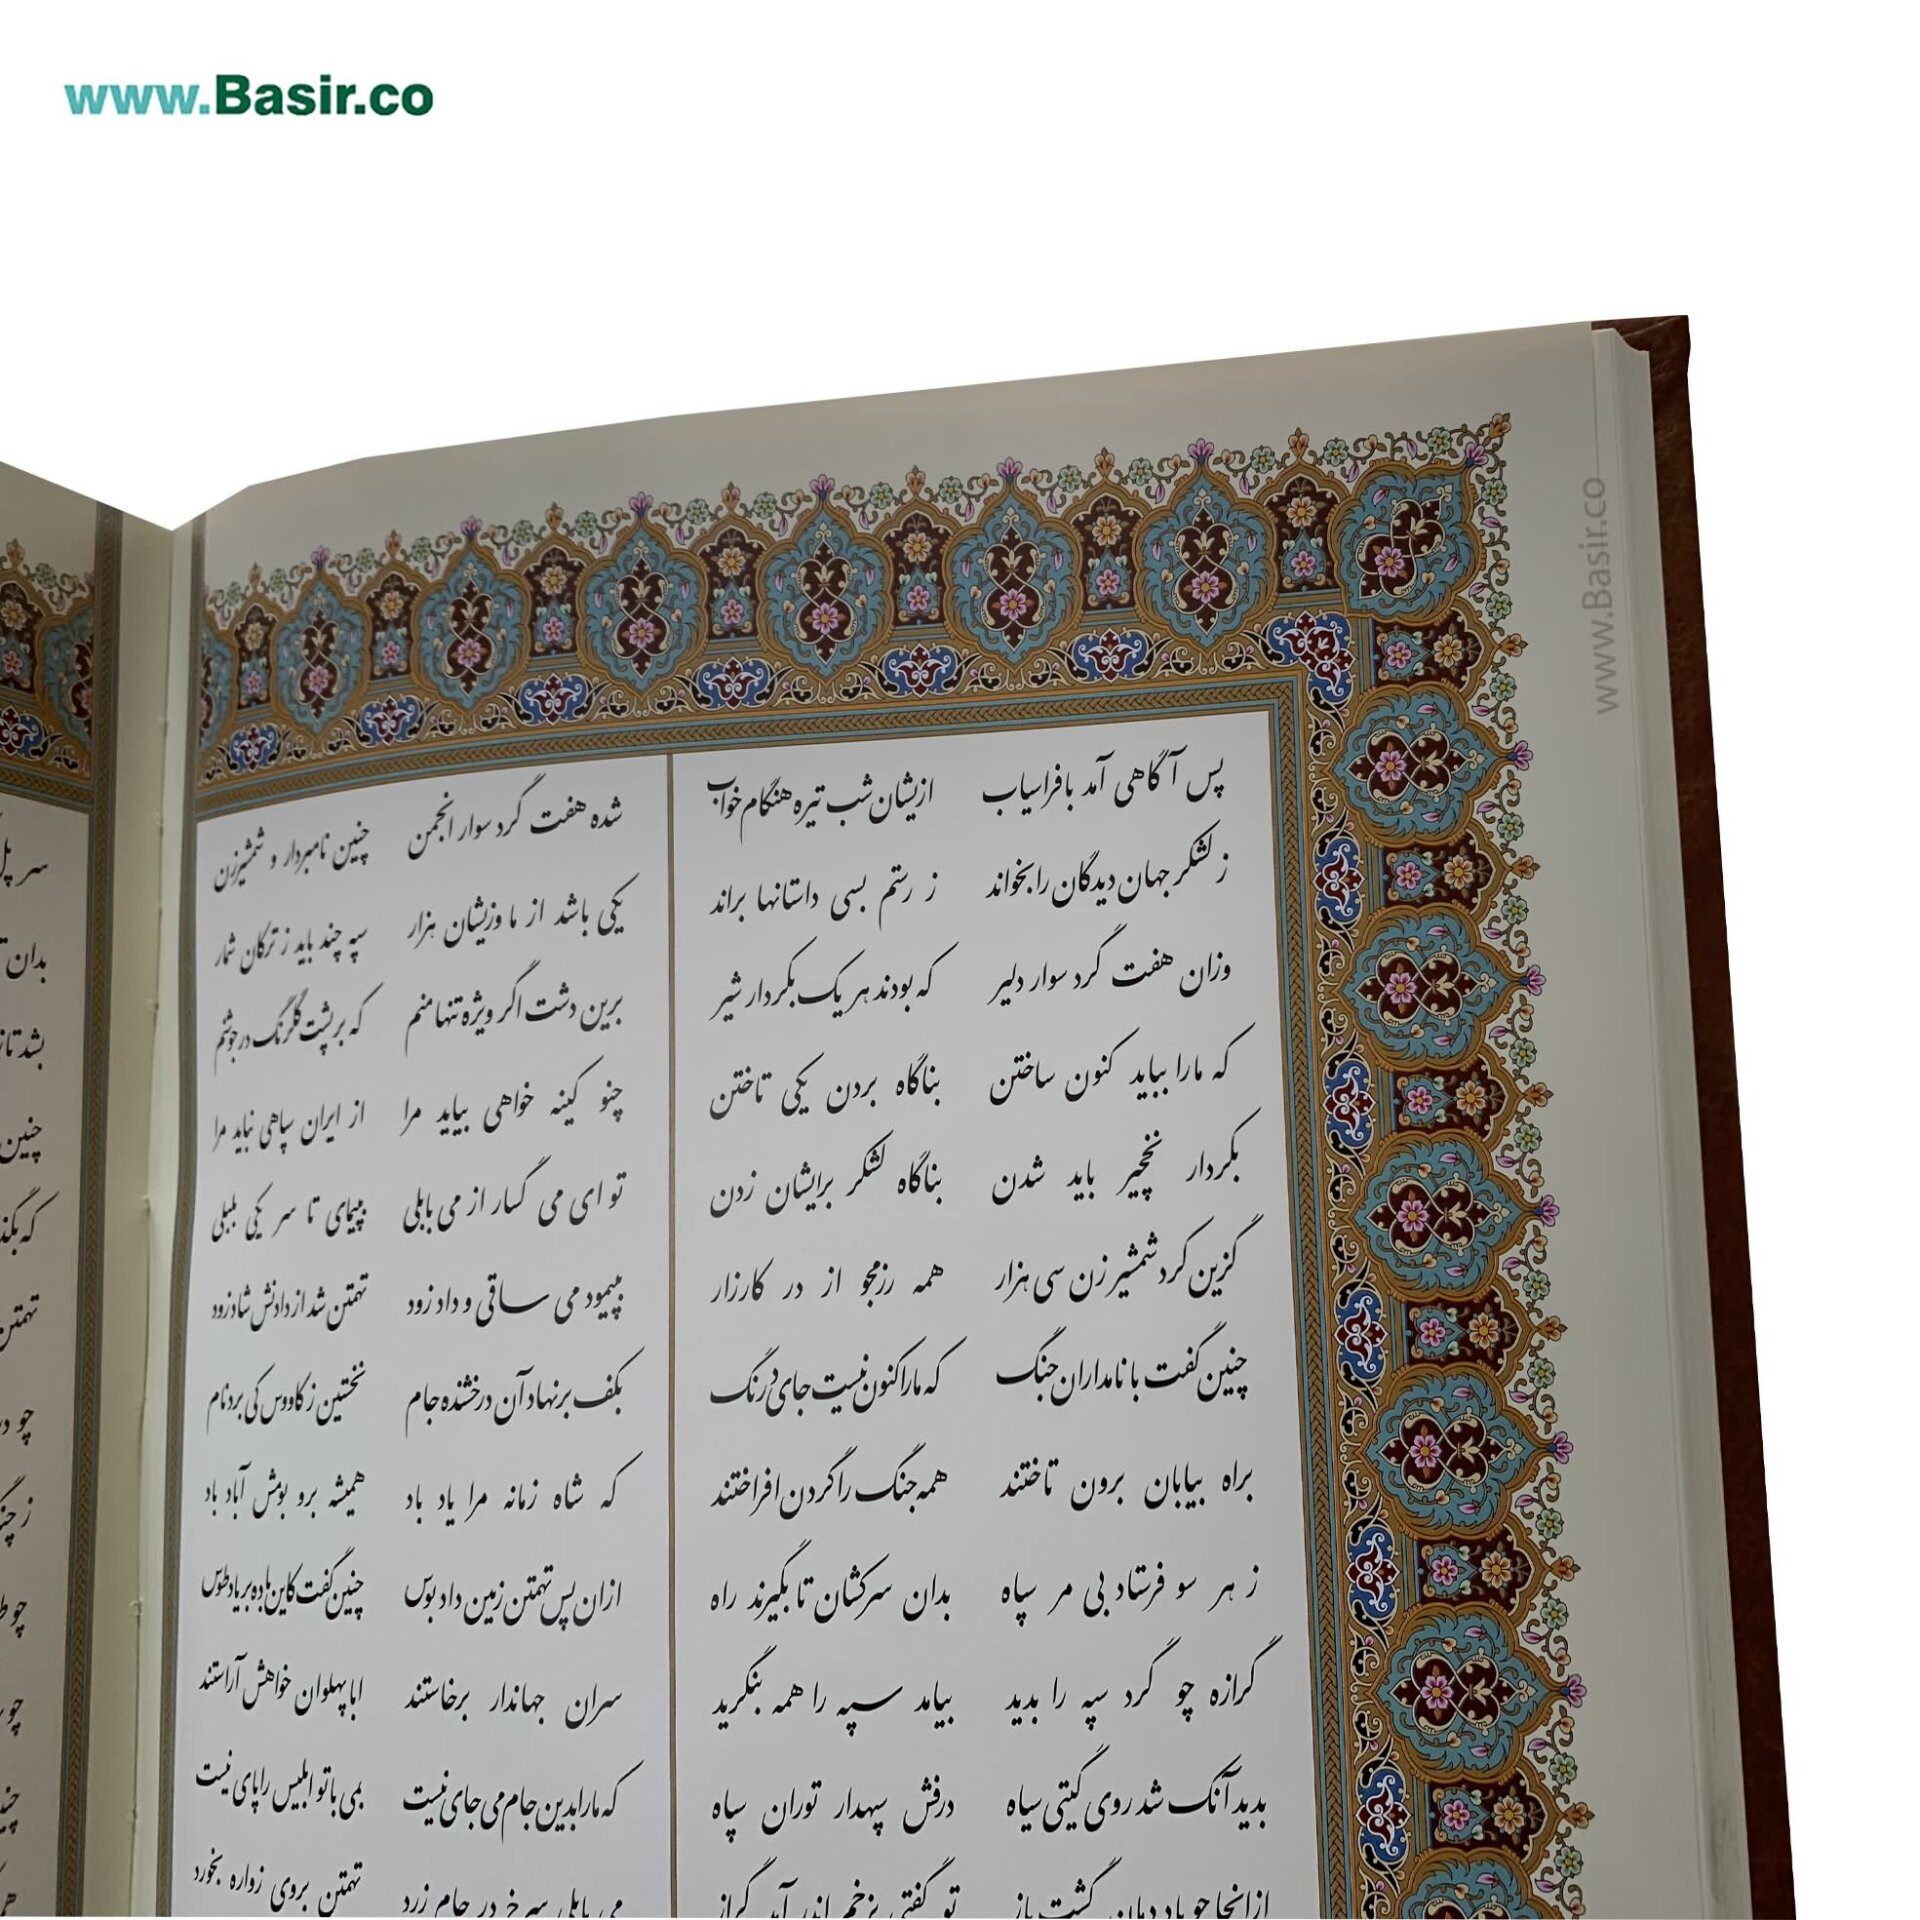 www.Basir.co
www.Basir.co
پس آگاهی آمد بافراسیاب ازیشان شب تیره هنگام خواب
ز لشکر جهان دیدگان را بخواند ز رستم بسی داستانها براند
وزان هفت گرد سوار دلیر که بودند هر یک بکردار شیر
که ما را بباید کنون ساختن بناگاه بردن یکی تاختن
بکردار نخچیر باید شدن بناگاه لشکر برایشان زدن
گزین کرد شمشیر زن سی هزار همه رزمجو از در کارزار
چنین گفت با نامداران جنگ که ما را کنون نیست جای درنگ
براه بیابان برون تاختند همه جنگ را گردن افراختند
ز هر سو فرستاد بی مر سپاه بدان سرکشان تا بگیرند راه
گرازه چو گرد سپه را بدید بیامد سپه را همه بنگرید
بدید آنک شد روی گیتی سیاه درفش سپهدار توران سپاه
ازانجا چو باد دمان گشت باز تو گفتی بزخم اندر آمد گراز
شده هفت گرد سوار انجمن چنین نامبردار و شمشیرزن
یکی باشد از ما وزیشان هزار سپه چند باید ز ترکان شمار
برین دشت اگر ویژه تنها منم که بر پشت گلرنگ در جوشنم
چنو کینه خواهی بیاید مرا از ایران سپاهی نباید مرا
تو ای می گسار از می بابلی بپیمای تا سر یکی بلبلی
بپیمود می ساقی و داد زود تهمتن شد از دادنش شاد زود
بکف بر نهاد آن درخشنده جام نخستین ز کاووس کی برد نام
که شاه زمانه مرا یاد باد همیشه برو بومش آباد باد
ازان پس تهمتن زمین داد بوس چنین گفت کاین باده بر یاد طوس
سران جهاندار برخاستند ابا پهلوان خواهش آراستند
که ما را بدین جام می جای نیست بمی با تو ابلیس را پای نیست
می بابلی سرخ در جام زرد تهمتن بروی زواره بخورد
سر
بدان
بشد
چنین
که
تهمتن
چو
ز
چو
چو